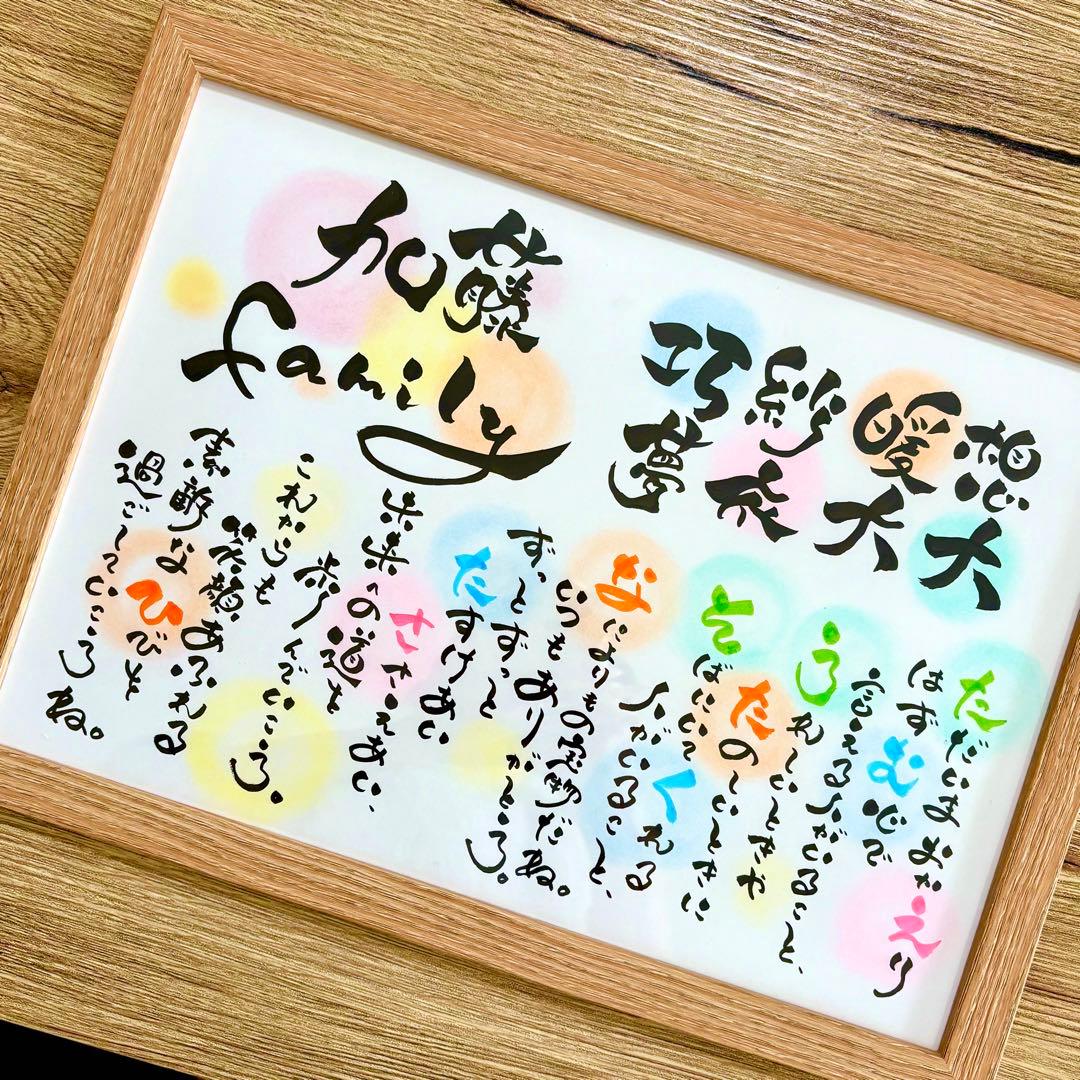 加藤
family
想大
暖大
紗衣
巧夢
ただいま おかえり
はずむ心で
言える人がいること、
うれしいときや
たのしいときに
そばにいて
くれる
人がいること、
なによりもの宝物だね。
いつもありがとう。
ずっとずっと
たすけあい
ささえあい、
未来への道を
歩んでいこう。
これからも
笑顔あふれる
素敵なひびを
過ごしていこうね。